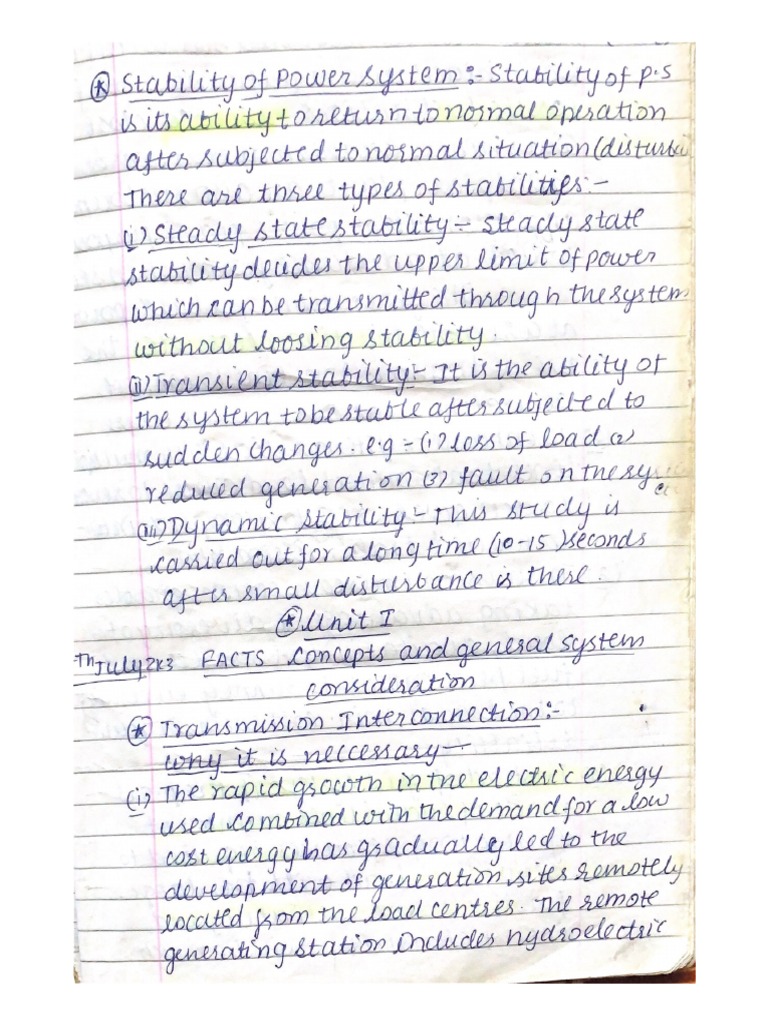 ⊛ Stability of Power System :- Stability of P.S
is its ability to return to normal operation
after subjected to normal situation (disturba
There are three types of stabilities :-
(i) Steady state stability :- Steady state
stability decides the upper limit of power
which can be transmitted through the system
without loosing stability.
(ii) Transient stability :- It is the ability of
the system to be stable after subjected to
sudden changes. e.g :- (1) loss of load (2)
reduced generation (3) fault on the sys
(iii) Dynamic stability :- This study is
carried out for a long time (10-15) seconds
after small disturbance is there.
⊛ Unit I
Th July 2K3 FACTS Concepts and general system
consideration
⊛ Transmission Interconnection :-
why it is neccessary —
(i) The rapid growth in the electric energy
used combined with the demand for a low
cost energy has gradually led to the
development of generation sites remotely
located from the load centres. The remote
generating station includes hydroelectric